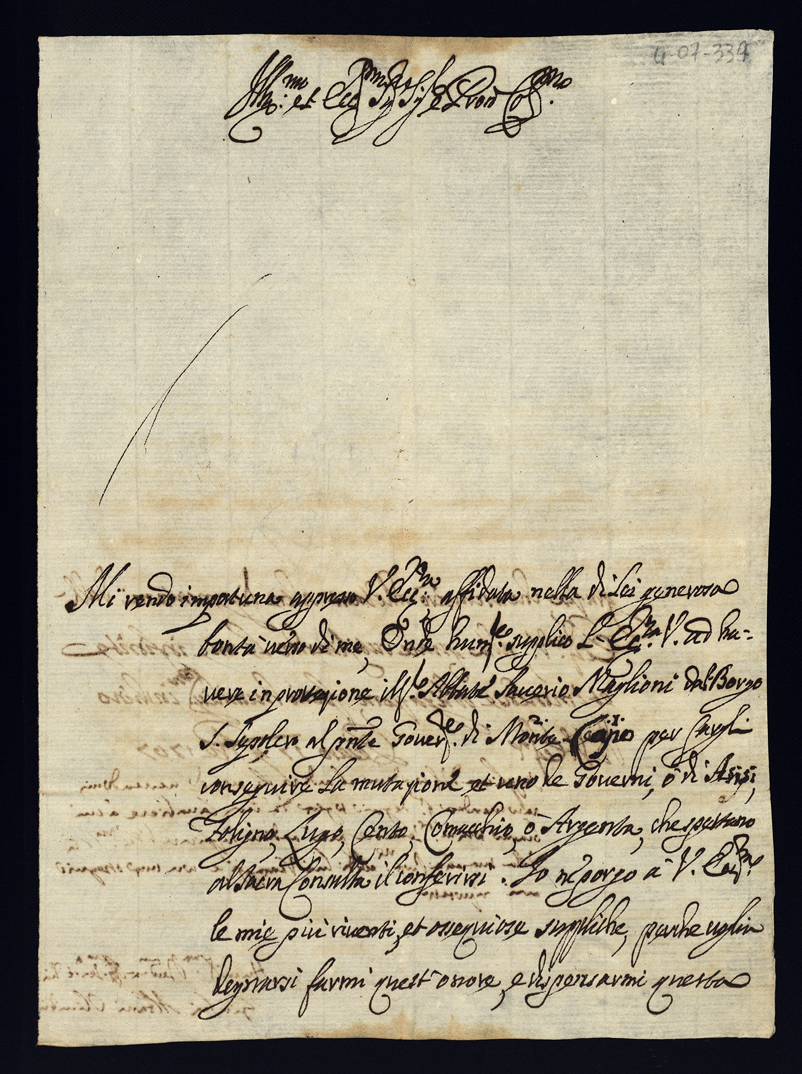 4-07-339
Ill.mo et Ecc.mo Sig. Sig. e Pron Col.mo
Mi rendo importuna appresso V. Ecc.za affidata nella di Lei generosa
bontà verso di me, Onde hum.te supplico L'Ecc.za V. ad ha-
vere in protezione il Sig.e Abbate Saverio Maglioni dal Borgo
S. Sepolcro al pnte Gover.re di Monte per fargli
conseguire la mutazione et uno de Governi, ò di Asisi,
Foligno, Lugo, Cento, Comachio, ò Argenta, che spettano
al Sacra Consulta il conferirsi. Io ne porgo à V. Ecc.za
le mie più riventi, et ossequiose suppliche, perche voglia
degnarsi farmi quest'onore, e dispensarmi questa